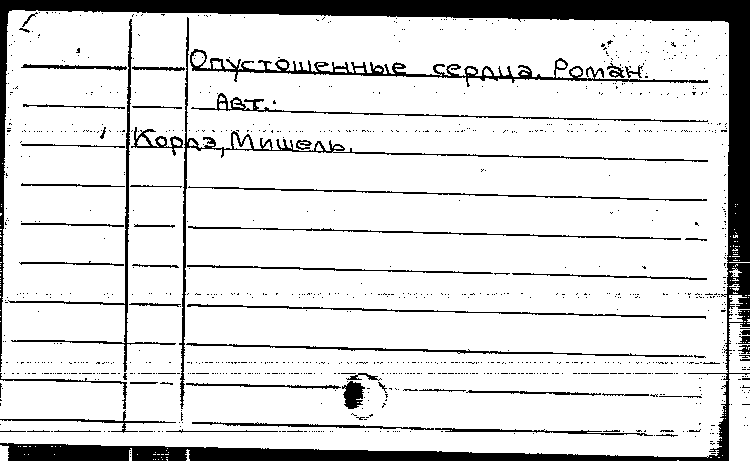 Опустошенные сердца. Роман.
Авт.:
Кордэ, Мишель.